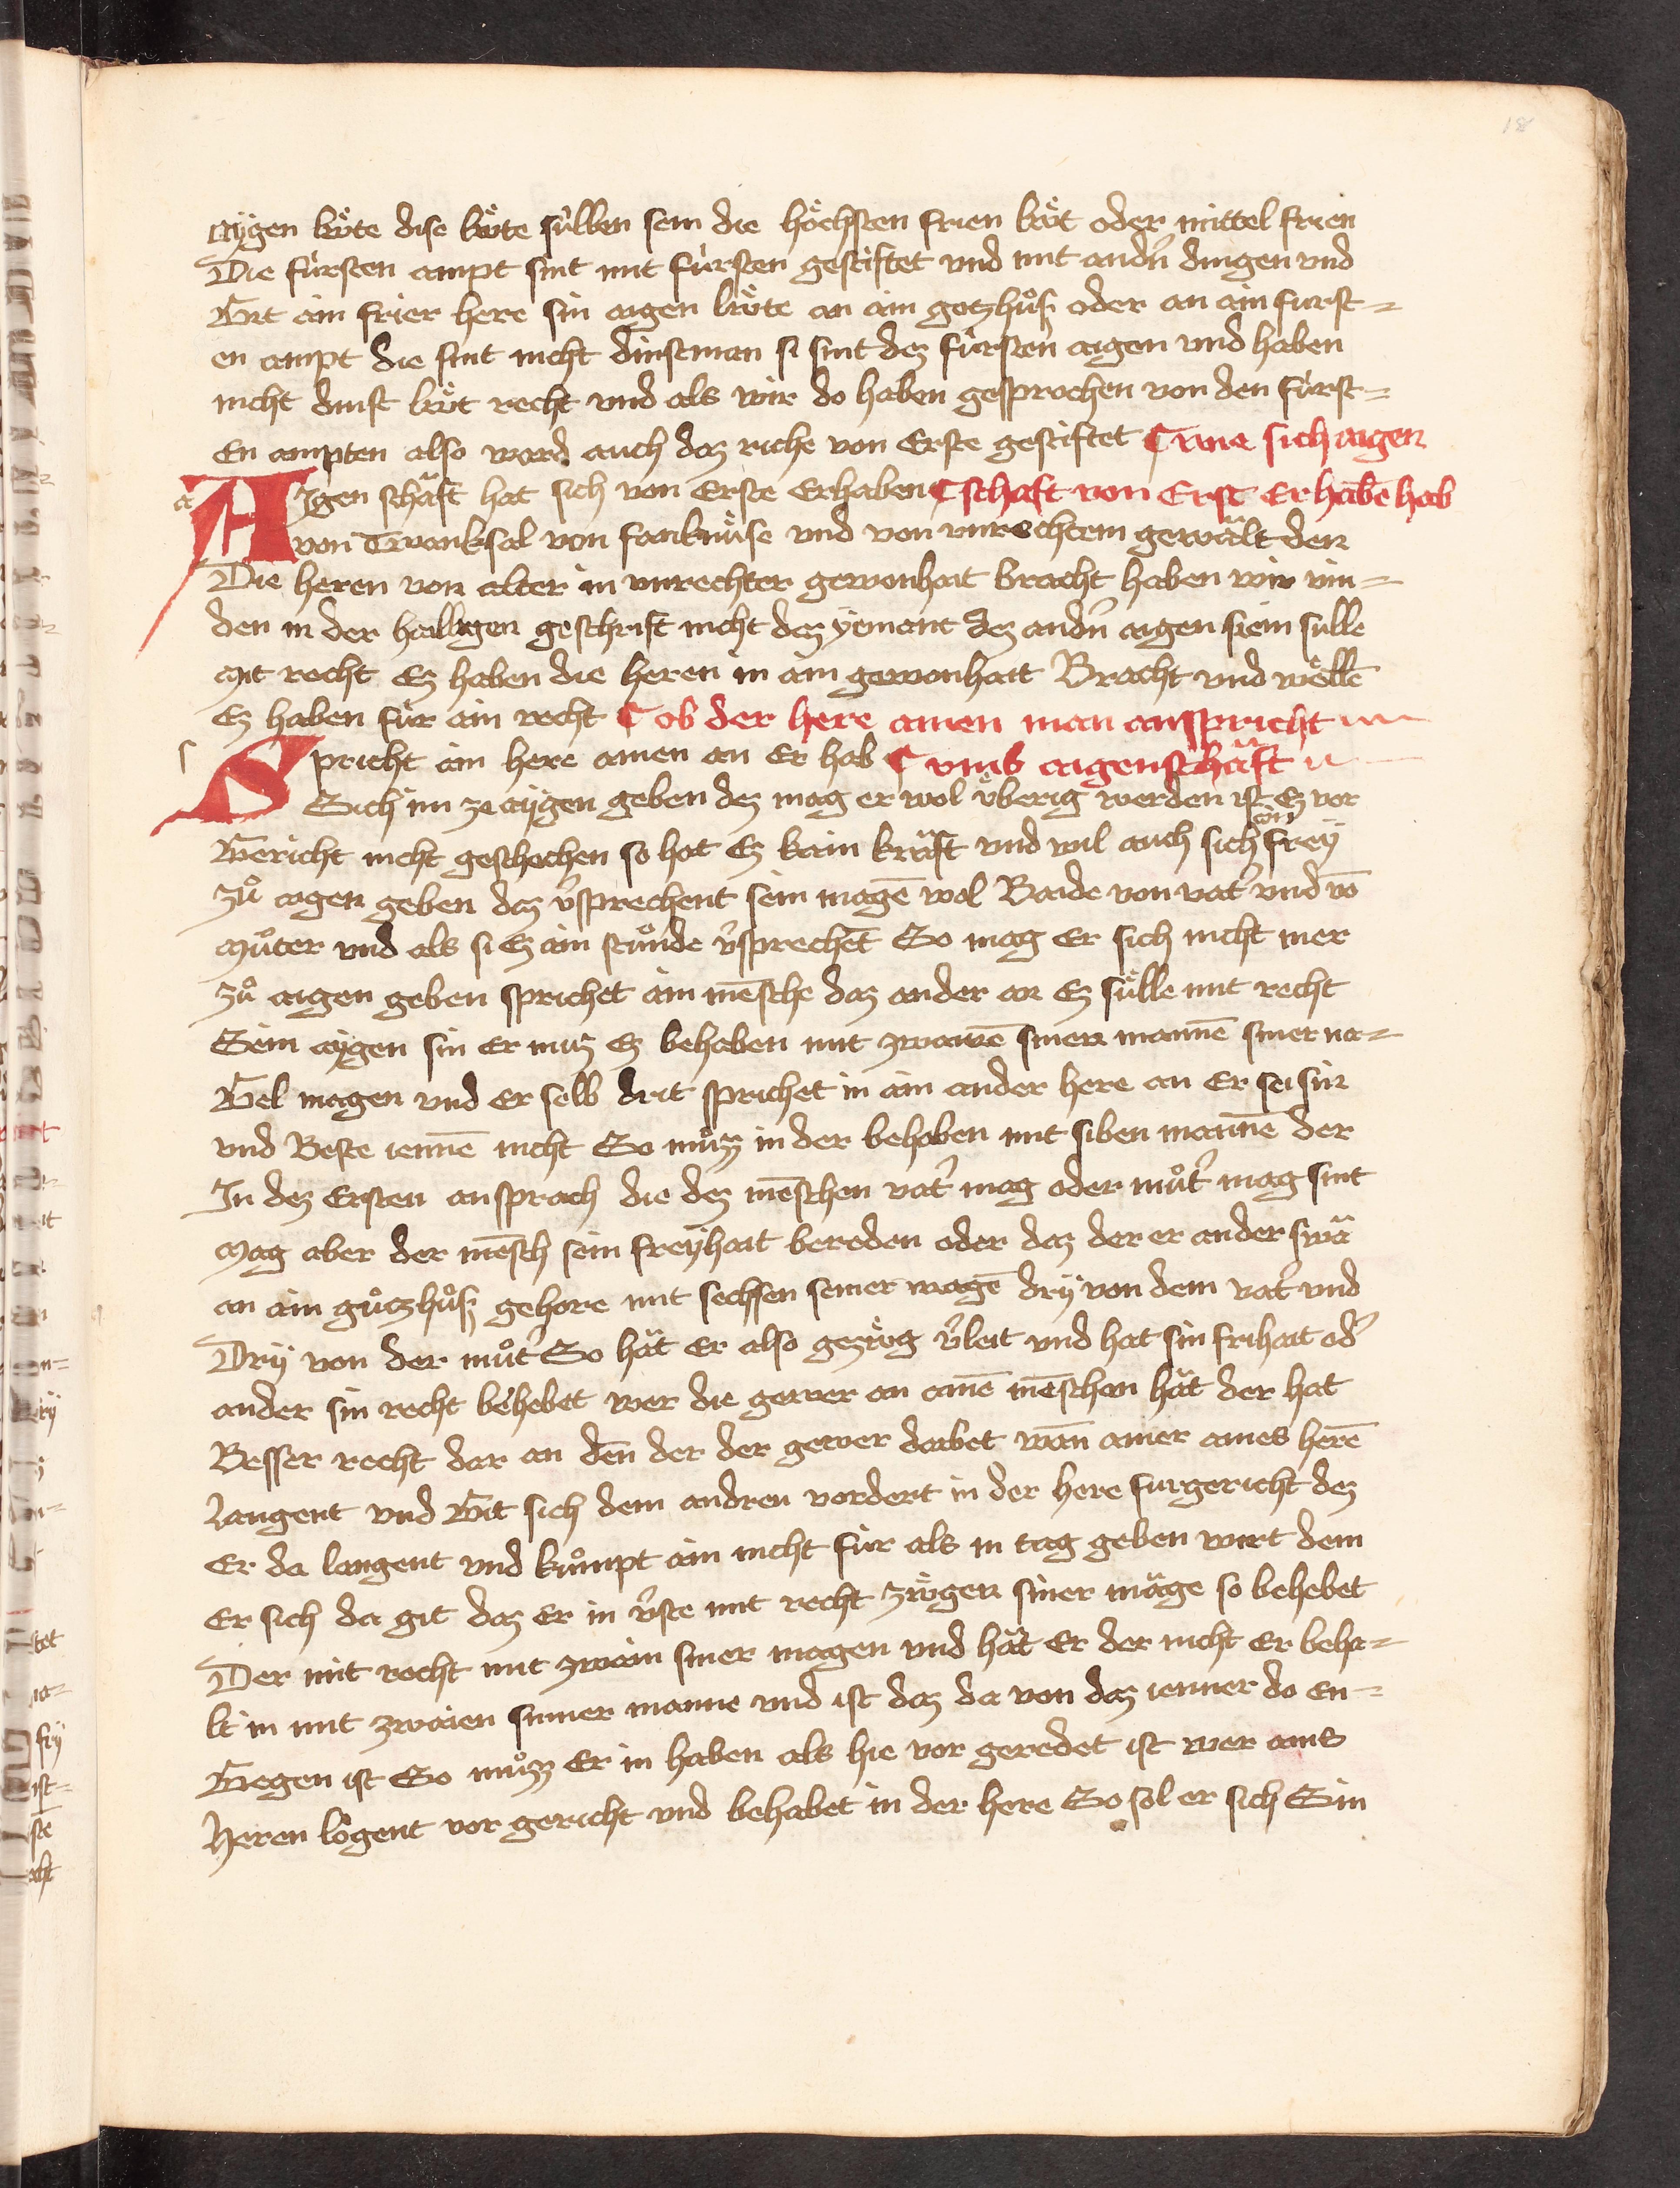 18
aÿgen lwͤte dise lwͤte sùllen sein die hoͤchsten frien lwͤt oder mittel frien
Die fùrsten ampt sint mit fùrsten gestiftet vnd mit andn̄ dingen vnd
Git ain frier here sin aigen lwͤte an ain gotzhuͦß oder an ain furst=
en ampt die sint nicht dinstman si sint dez fùrsten aigen vnd haben
nicht dinst lwͤt recht vnd als wir do haben gesprochen von den fùrst=
En ampten also ward auch daz riche von Erste gestiftet ¶ wie sich aigen
AJgen schaͤft hat sich von Erste Erhaben ¶ schaft von Erst Erhabē hab
von Twanksal von fanknuͤse vnd von vnrechtem gewaͤlt den
Die heren von alter in vnrechter gewonhait bracht haben wir vin=
den in der hailligen geschrift nicht daz yemant dez andn̄ aigen siein sulle
Mit recht Ez haben die heren in ain gewonhait Bracht vnd woͤllē
Ez haben fùr ain recht ¶ ob der here ainen man anspricht
Spricht ain here ainen an Er hab ¶ vmb aigenschaͤft
Sich im ze aÿgen geben dez mag er wol vͤberig werden ist Ez vor
Gericht nicht geschechen so hat Ez kain kraͤft vnd wil auch sich ain freÿ
Zuͦ aigen geben daz v̄sprechent sein magē wol Baide von vat̄ vnd vō
Muͦter vnd als si Ez ain stuͦnde v̄sprechēt So mag Er sich nicht mer
Zuͦ aigen geben sprichet ain mēsche daz ander an Ez suͤlle mit recht
Sein aÿgen sin Er muz Ez behaben mit zwaiē siner mannē siner na=
Gel magen vnd Er selb drit sprichet in ain ander here an Er sei sin
vnd Beste iennē nicht So muͦzz in der behaben mit siben mannē der
In dez Ersten ansprach die dez mēschen vat̄ mag oder muͦt̄ mag sint
Mag aber der mēsch sein freÿhait bereden oder daz der er anderswaͤ
an ain guͦtzhuͦß gehore mit sechsen seiner magē drÿ von dem vat̄ vnd
Drÿ von der muͦt̄ So haͤt Er also gezwͤg v̄leit vnd hat sin frihait od̄
ander sin recht behebet wer die gewer an ainē mēschen haͤt der hat
Besser recht dar an dēn der der gewer darbet wān ainer aines herē
Laugent vnd Git sich dem andren vordert in der here fur gericht dez
Er da laugent vnd kuͦmpt ain nicht fùr als in tag geben wirt dem
Er sich da git daz Er in v̄ste mit recht zwͤgen siner maͤge so behebet
Der mit recht mit zwain siner magen vnd haͤt Er der nicht Er beha=
lt in mit zwaien sinner manne vnd ist daz da von daz ienner do en=
Gegen ist So muͦzz Er in haben als hie vor geredet ist wer ains
Heren loͤgent vor gericht vnd behabet in der here So sol er sich Sin